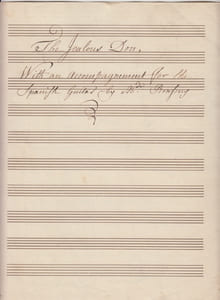 The Jealous Don.
With an Accompagnement for the
Spanish Guitar by